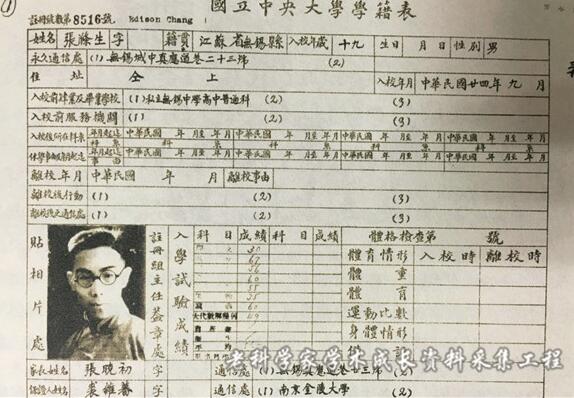 ①
國立中央大學學籍表
註冊號數第8516號 Edison Chang
姓名 張滌生 字 籍貫 江蘇省無錫縣 入校年歲 十九 生日 月 日 性別 男
永久通信處 (1) 無錫城中真應道巷二十三號 (2)
住址 仝上 入校年月 中華民國廿四年九月
入校前肄業及畢業學校 (1) 私立無錫中學高中普通科 (2) (3)
入校前服務機關 (1) (2) (3)
入校後所在科系 年月起迄 中華民國 年 月至 年 月 中華民國 年 月至 年 月 中華民國 年 月至 年 月 中華民國 年 月至 年 月
科 系 科 系 科 系 科 系
年月起迄 中華民國 年 月至 年 月 中華民國 年 月至 年 月 中華民國 年 月至 年 月 中華民國 年 月至 年 月
事由
離校年月 中華民國 年 月 離校事由
離校後行動 (1) (2) (3)
離校後之通信處 (1) (2) (3)
貼相片處
註冊組主任蓋章處
入學試驗成績
科目 成績 科目 成績
體格檢查第 號
體育情形 入校時 離校時
體重
體育
運動比數
身體情形
大代數解幾何
老科学家学术成长资料采集工程
家長姓名 張曉初 字 通信處 (1) 無錫真應道巷廿三號 (2)
保證人姓名 裘維蕃 字 通信處 (1) 南京金陵大學 (2)